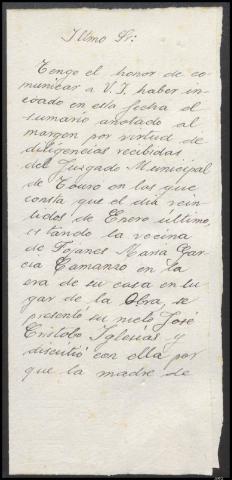 Iltmo Sr:
Tengo el honor de co-
municar a V. I. haber in-
coado en esta fecha el
sumario anotado al
margen por virtud de
diligencias recibidas
del Juzgado Municipal
de Touro en las que
consta que el dia vein-
tidos de Enero último,
estando la vecina
de Fojanes Maria Gar-
cia Camanzo en la
era de su casa en lu-
gar de la Obra, se
presentó su nieto José
Cristobo Iglesias y
discutió con ella por
que la madre de